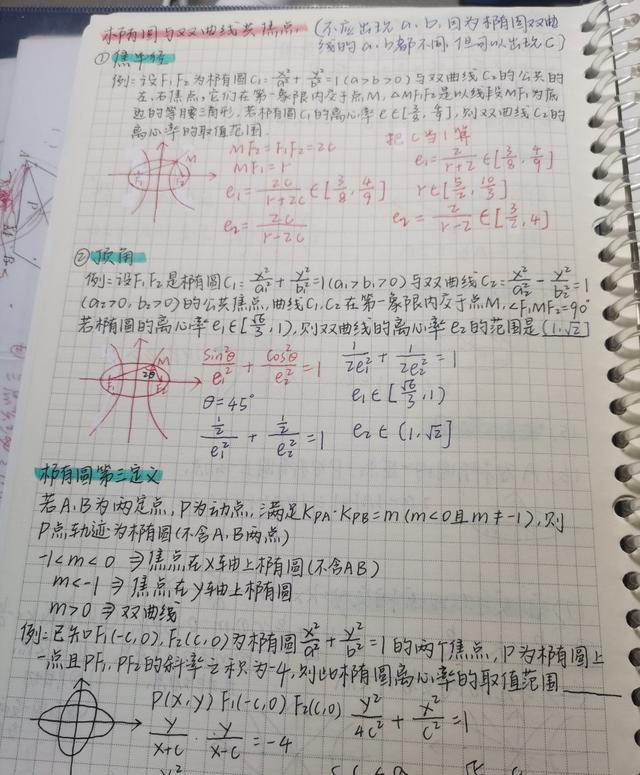 椭圆与双曲线共焦点 (不应出现a、b,因为椭圆双曲
线的a、b都不同,但可以出现c)
①焦半径
例:设F₁,F₂为椭圆C₁:x²/a²+y²/b²=1(a>b>0)与双曲线C₂的公共的
左、右焦点,它们在第一象限内交于点M,△MF₁F₂是以线段MF₁为底
边的等腰三角形,若椭圆C₁的离心率e∈[3/8,4/9],则双曲线C₂的
离心率的取值范围.
MF₂=F₁F₂=2c
MF₁=r
e₁=2c/(r+2c)∈[3/8,4/9]
e₂=2c/(r-2c)
把c当1算
e₁=2/(r+2)∈[3/8,4/9]
r∈[5/2,10/3]
e₂=2/(r-2)∈[3/2,4]
M
F₁ F₂
②顶角
例:设F₁,F₂是椭圆C₁:x²/a₁²+y²/b₁²=1(a₁>b₁>0)与双曲线C₂:x²/a₂²-y²/b₂²=1
(a₂>0,b₂>0)的公共焦点,曲线C₁,C₂在第一象限内交于点M,∠F₁MF₂=90°
若椭圆的离心率e₁∈[√6/3,1),则双曲线的离心率e₂的范围是(1,√2]
M
2θ
F₁ F₂
sin²θ/e₁²+cos²θ/e₂²=1
θ=45°
(1/2)/e₁²+(1/2)/e₂²=1
1/2e₁²+1/2e₂²=1
e₁∈[√6/3,1)
e₂∈(1,√2]
椭圆第三定义
若A、B为两定点,P为动点,满足K_PA·K_PB=m(m<0且m≠-1),则
P点轨迹为椭圆(不含A,B两点)
-1<m<0⇒焦点在x轴上椭圆(不含AB)
m<-1⇒焦点在y轴上椭圆
m>0⇒双曲线
例:已知F₁(-c,0),F₂(c,0)为椭圆x²/a²+y²/b²=1的两个焦点,P为椭圆上
一点且PF₁,PF₂的斜率之积为-4,则此椭圆离心率的取值范围
P(x,y) F₁(-c,0) F₂(c,0) y²/4c²+x²/c²=1
y/(x+c)·y/(x-c)=-4